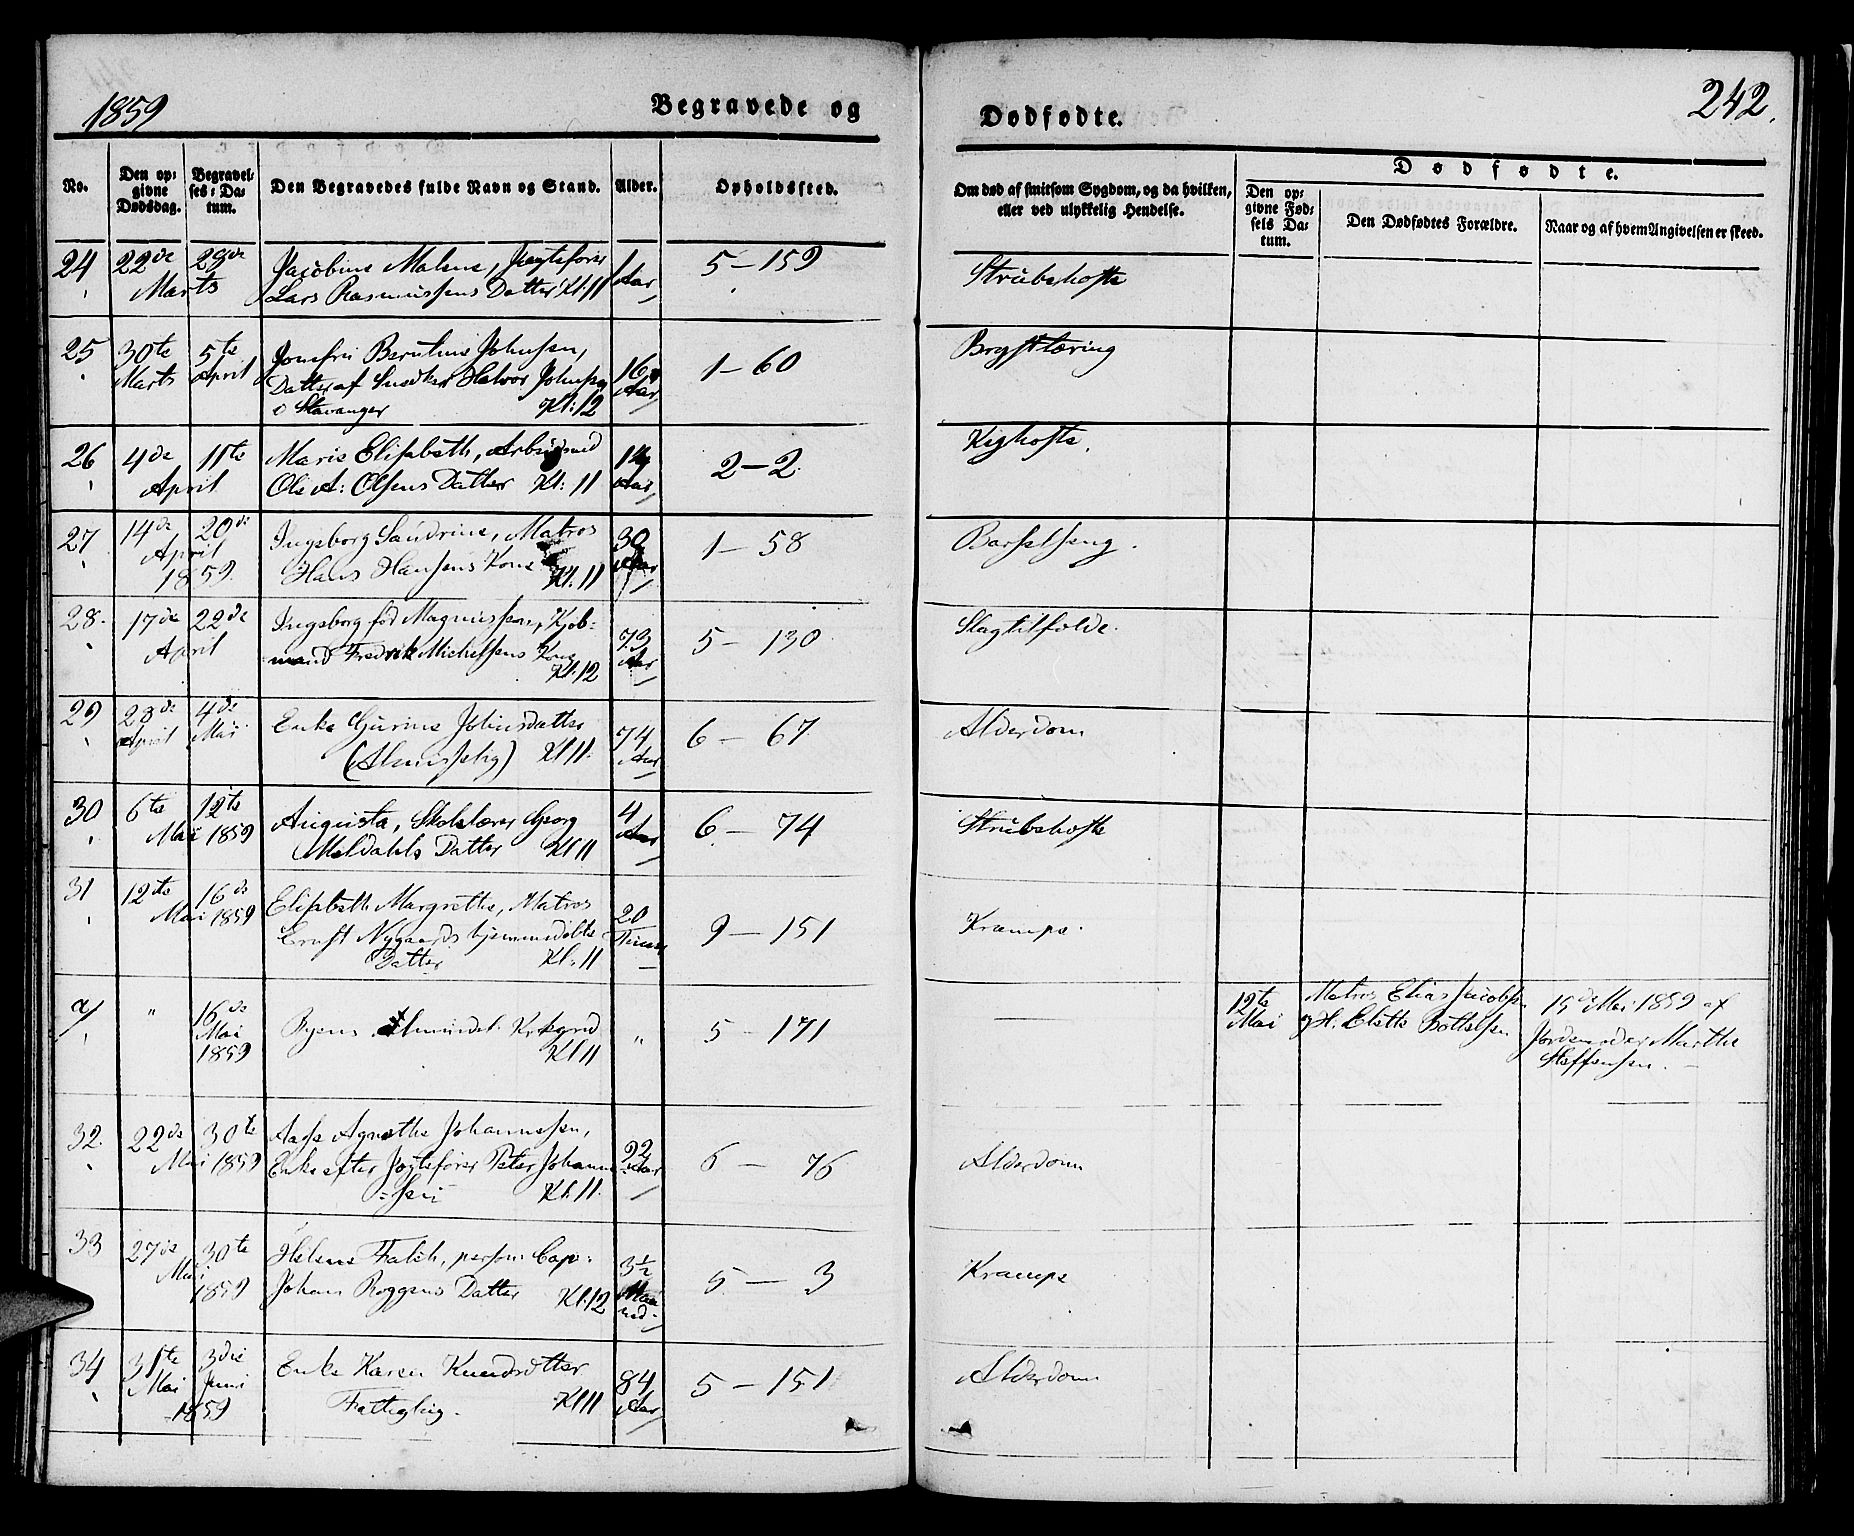 1859
Begravede og
Dødfødte.
242.
No.
Den op-
givne
Dødsdag.
Begravel-
ses-Da-
tum.
Den Begravedes fulde Navn og Stand.
Alder.
Opholdssted.
Om død af smitsom Sygdom, og da hvilken,
eller ved ulykkelig Hendelse.
Dødfødte.
Den op-
givne Fød-
sels Da-
tum.
Den Dødfødtes Forældre.
Naar og af hvem Angivelsen er skeed.
24 22de 29de Jacobine Malene, Jagtefører 1 5 – 159 Strubehoste
Marts Lars Rasmussens Datter Kl: 11 Aar
25 30te 5te Jomfru Johnsen, 1 – 60 Brystlæring
Marts April Datter af Snedker Halvor Johnsen 16 Aar
i Stavanger Kl: 12
26 4de 11te Marie Elisabeth, Arbeidsmd 2 – 2 Kighoste
April Ole A: Olsens Datter Kl: 11 Aar
27 14de 20de Ingeborg Sandrine, Matros 30 1 – 58 Barselseng.
April Hans Hansens Kone Aar
1859. Kl: 11
28. 17de 22de Ingeborg fød Magnussen, Kjøb- 73 5 – 130 Slagtilfælde.
April mand Fredrik Michelsens Kone Aar
Kl. 12
29 28de 4de Enke Gurine Johnsdatter 74 6 – 67 Alderdom
April Mai (Almisselig) Kl 11. Aar
30 6te 12te Augusta, Skolelærer Georg 4 6 – 74 Strubehoste
Mai 1859 Meldahls Datter Kl 11 Aar
31 12te 16de Elisabeth Margrethe, Matros 20 9 – 151 Krampe.
Mai 1859 Ernst Nygaards hjemmedøbte Timer
Datter Kl: 11
a/ " 16de Byens Almindel: Kirkegrd " 5 – 171 12te Matros Elias Jacobsen 15de Mai 1859 af
Mai Mai og H. Elette Jordemoder Marthe
1859 Kl 11 Steffensen.
32. 22de 30te Aase Agnethe Johannesen, 92 6 – 76 Alderdom
Mai 1859 Enke efter Jagtefører Peter Johanne- Aar
=sen Kl. 11.
33 27de 30te Helene Falch, Cap: 3½ 5 – 3 Krampe
Mai Johan Roggens Datter Kl. 12 Maa-
1859 ned
34 31te 3die Enke Karen Knudsdtter 84 5 – 151 Alderdom
Mai Juni Fattiglig. Kl 11 Aar
1859